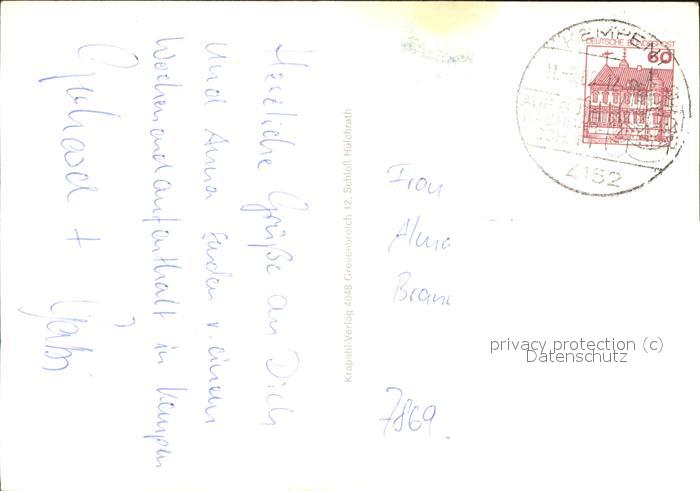 Herzliche Grüße an Dich
und Anna senden v. einem
Wochenendaufenthalt in Kempen
Gerhard + Gabi
Krapohl-Verlag 4048 Grevenbroich 12, Schloß Hülchrath
KEMPEN 1
4152
DEUTSCHE BUNDESPOST
60
Frau
Alma
7869
privacy protection (c)
Datenschutz